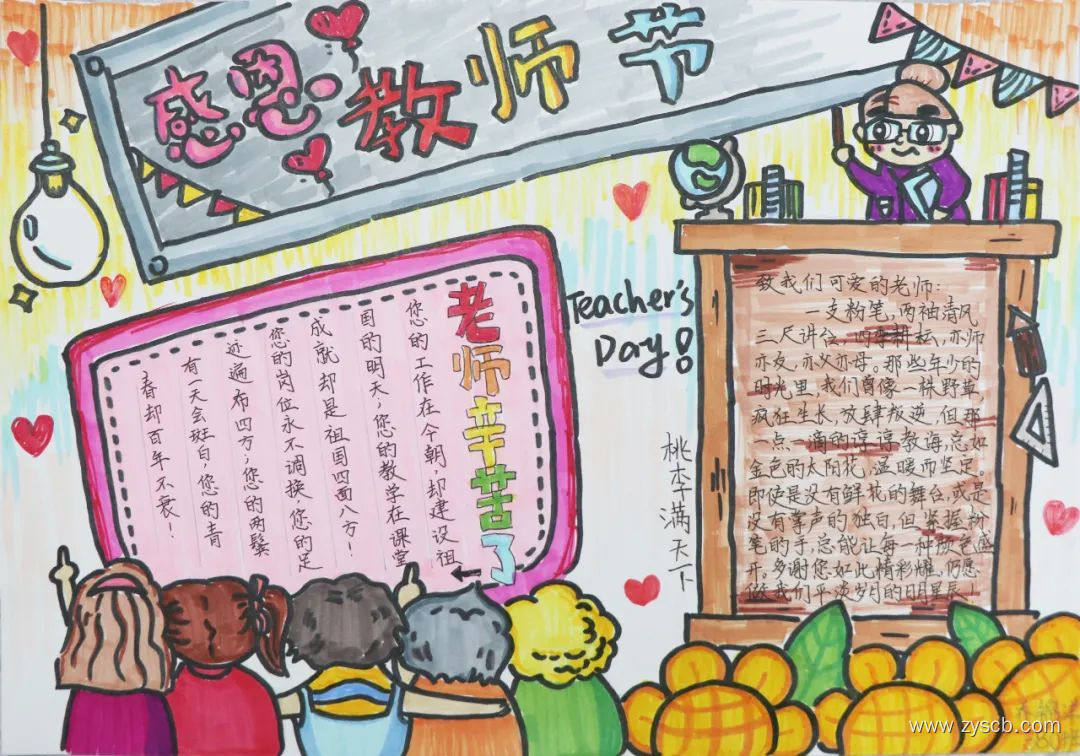 感恩教师节
老师辛苦了
您的工作在今朝,却建设祖
国的明天,您的教学在课堂
成就却是祖国四面八方!
您的岗位永不调换,您的足
迹遍布四方,您的两鬓
有一天会斑白,您的青
春却百年不衰!
Teacher's
Day!
桃李满天下
致我们可爱的老师:
一支粉笔,两袖清风
三尺讲台,四季耕耘,亦师
亦友,亦父亦母。那些年少的
时光里,我们曾像一株野草
疯狂生长,放肆叛逆,但那
一点一滴的谆谆教诲,总如
金色的太阳花,温暖而坚定。
即使是没有鲜花的舞台,或是
没有掌声的独白,但紧握粉
笔的手,总能让每一种颜色盛
开。多谢您如此精彩耀,仍愿
做我们平淡岁月的日月星辰!
www.zyscb.com